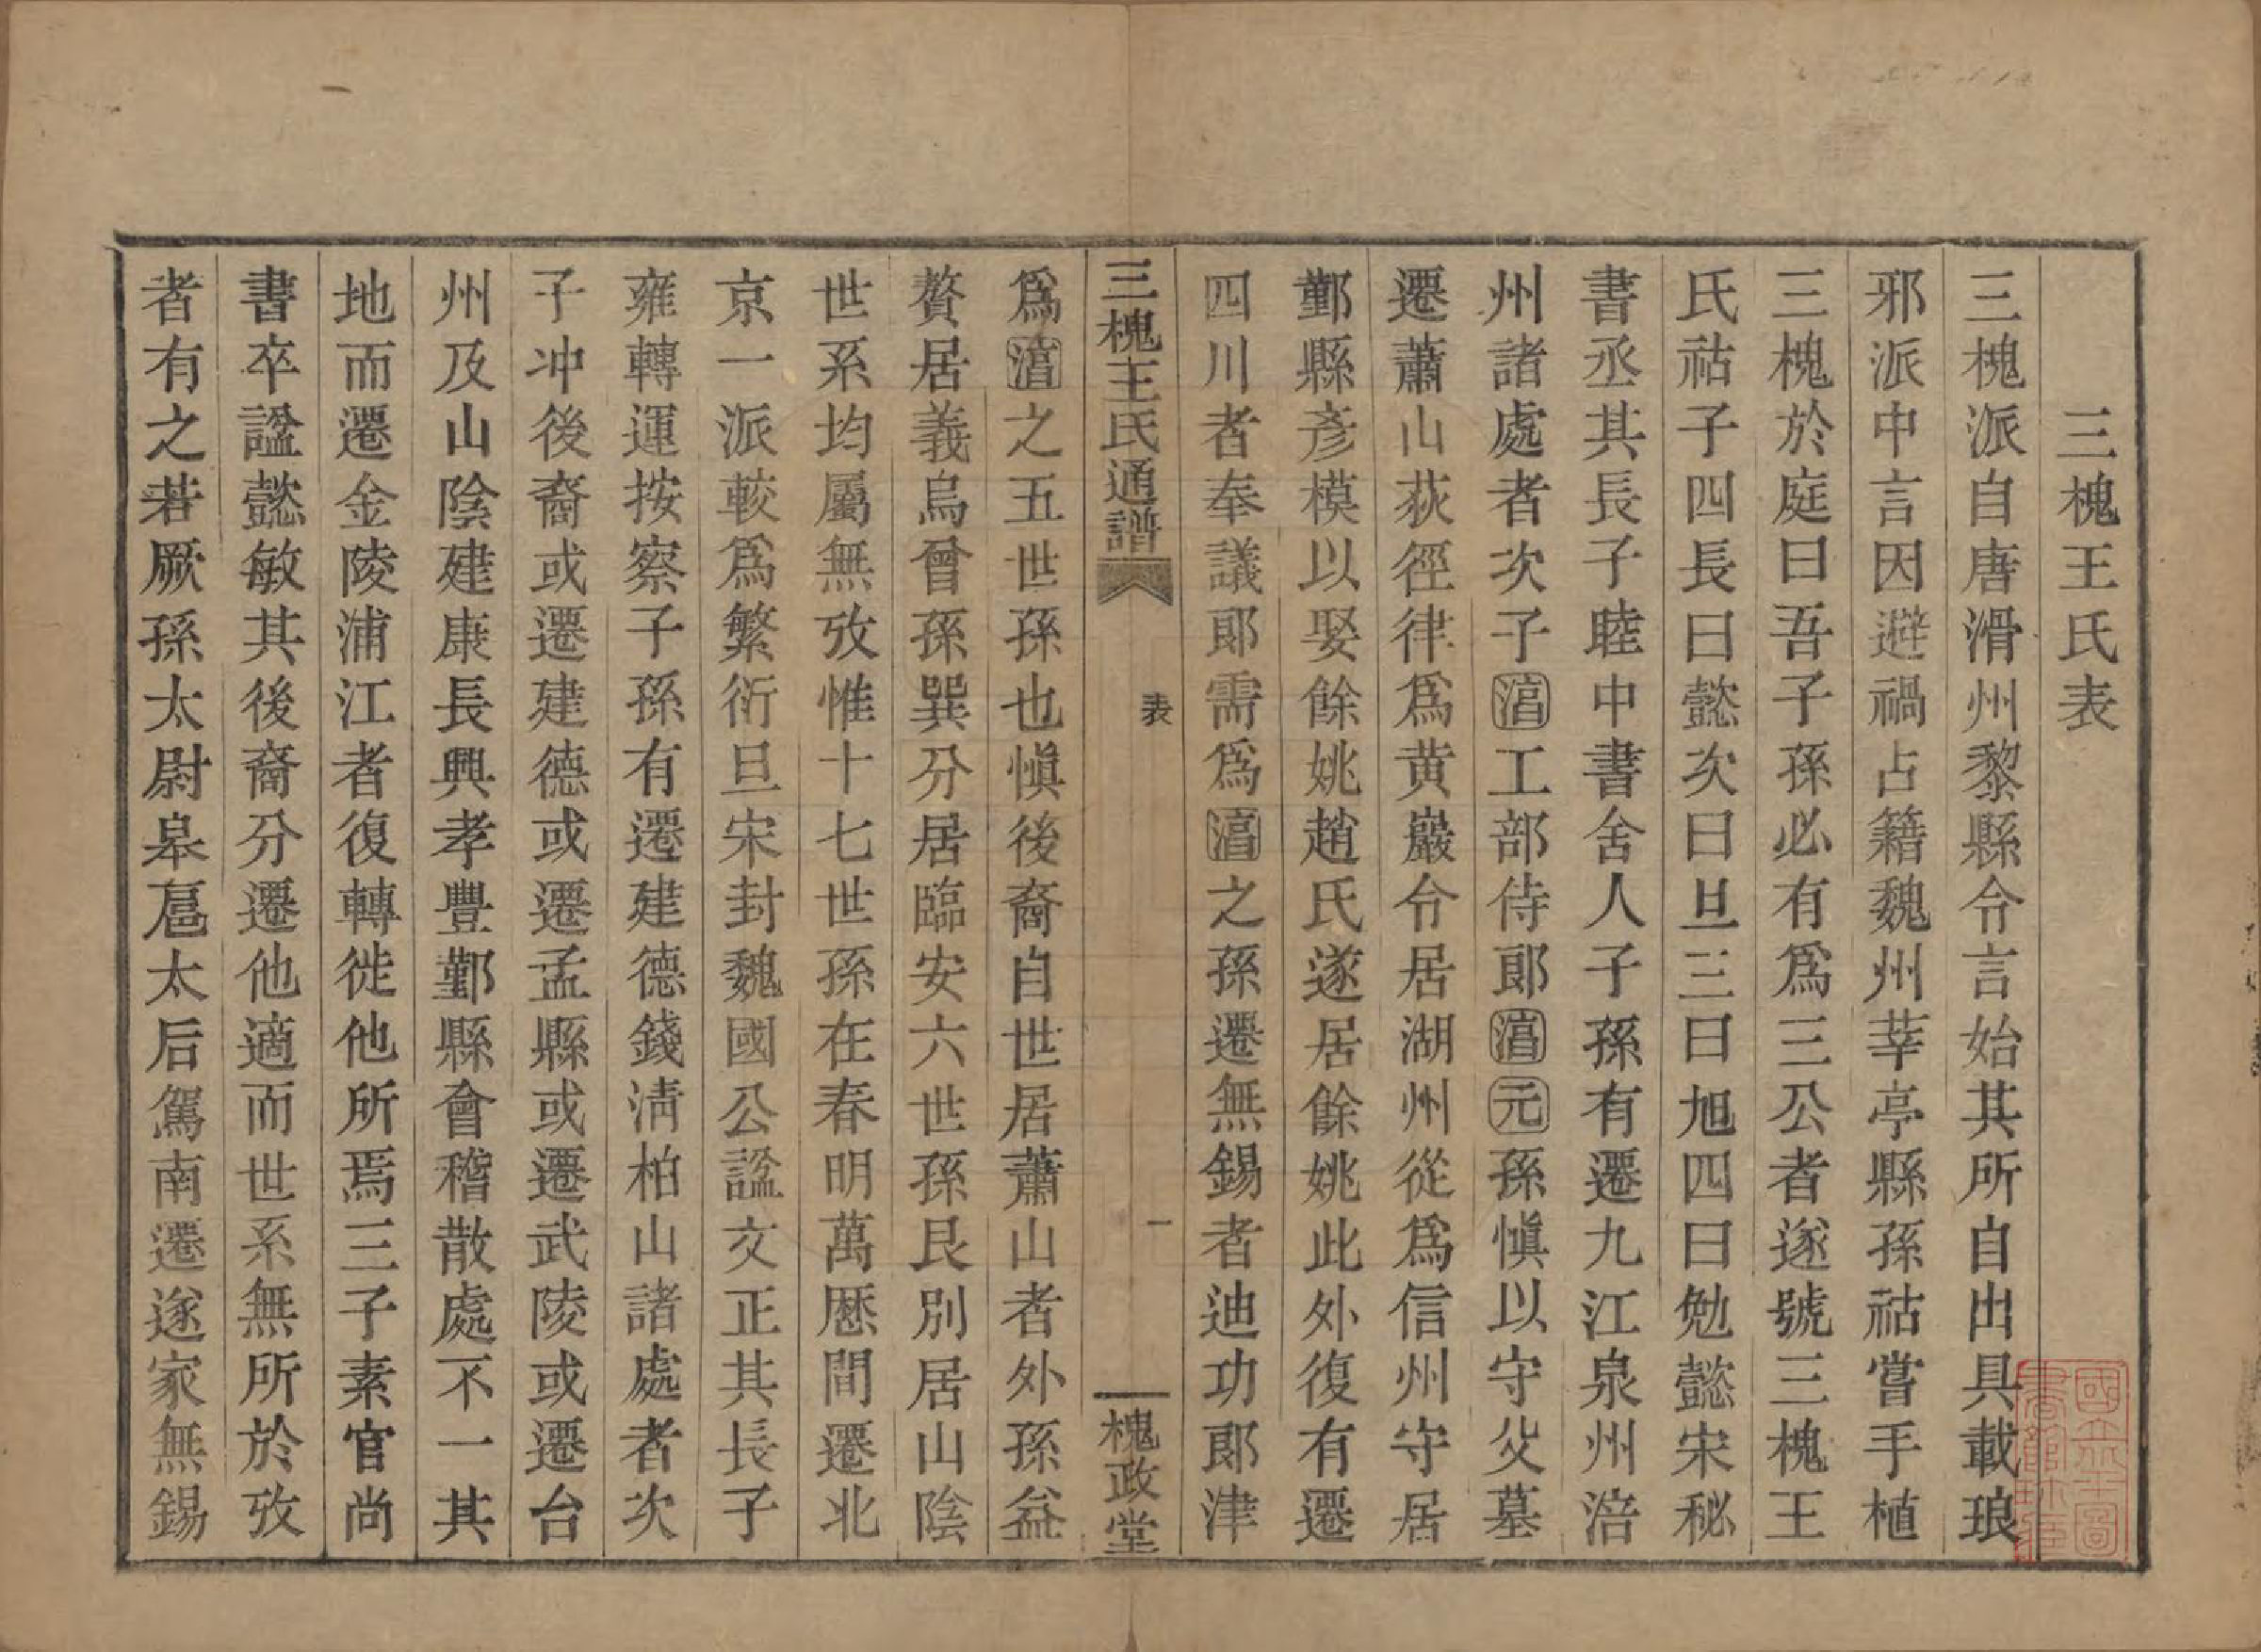 三槐王氏表
三槐派自唐滑州黎縣令言始其所自出具載琅
邪派中言因避禍占籍魏州莘亭縣孫祜嘗手植
三槐於庭曰吾子孫必有爲三公者遂號三槐王
氏祜子四長曰懿次曰旦三曰旭四曰勉懿宋秘
書丞其長子睦中書舍人子孫有遷九江泉州涪
州諸處者次子㵆工部侍郎㵆元孫愼以守父墓
遷蕭山荻徑律爲黄巖令居湖州從爲信州守居
鄞縣彥模以娶餘姚趙氏遂居餘姚此外復有遷
四川者奉議郎需爲㵆之孫遷無錫者迪功郎津
三槐王氏通譜
表
一
槐政堂
爲㵆之五世孫也愼後裔自世居蕭山者外孫益
贅居義烏曾孫巽分居臨安六世孫艮別居山陰
世系均屬無攷惟十七世孫在春明萬厯間遷北
京一派較爲繁衍旦宋封魏國公諡文正其長子
雍轉運按察子孫有遷建德錢淸柏山諸處者次
子冲後裔或遷建德或遷孟縣或遷武陵或遷台
州及山陰建康長興孝豐鄞縣會稽散處不一其
地而遷金陵浦江者復轉徙他所焉三子素官尚
書卒諡懿敏其後裔分遷他適而世系無所於攷
者有之若厥孫太尉皋扈太后駕南遷遂家無錫
國立北平圖書館珍藏